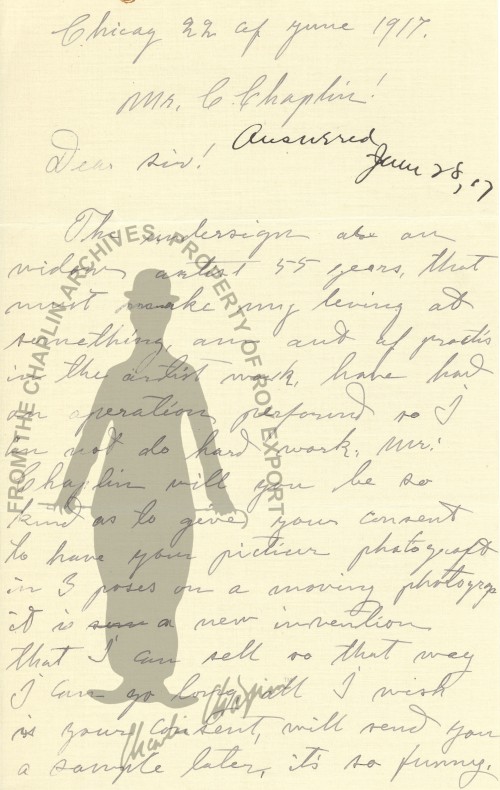 Chicag 22 af yune 1917.
Mr. C. Chaplin!
Answered
Dear sir!
June 28, 17
The undersign are an
widow artist 55 years, that
must make my living at
something, am aut af practis
in the artist work, have had
an operation perfornd so I
can not do hard work, Mr.
Chaplin will you be so
kind as to gived your consent
to have your pictiur photograft
in 3 poses on a moving photograp
it is a new invention
that I can sell so that way
I can go long, all I wish
is your consent, will send you
a sample later, it's so funny.
FROM THE CHAPLIN ARCHIVES, PROPERTY OF ROY EXPORT
Charlie Chaplin